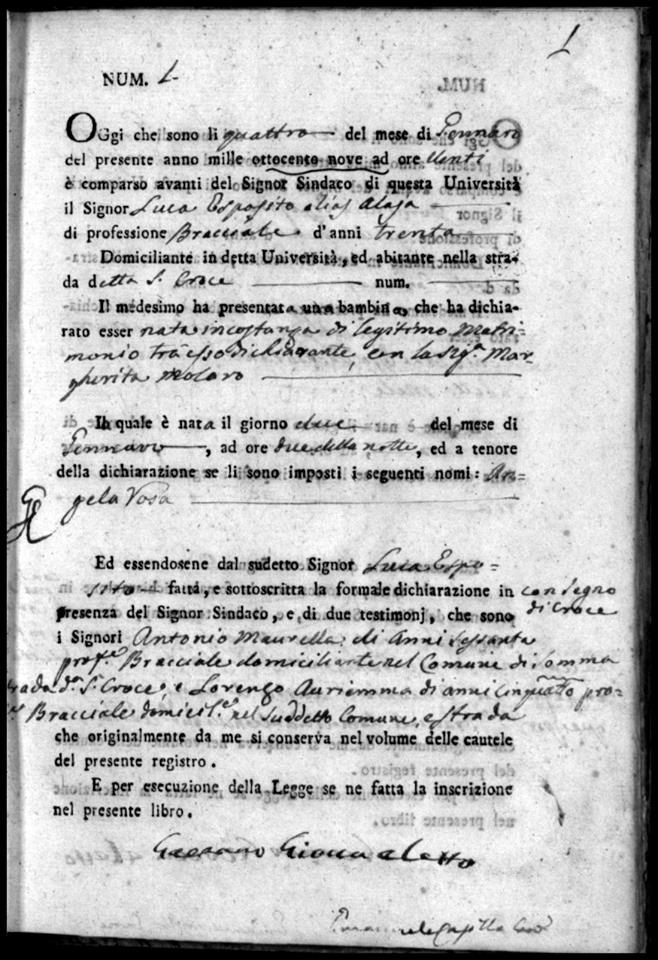 1
NUM. 1.
OGgi che sono li quattro del mese di Gennaro
del presente anno mille ottocento nove ad ore Venti
è comparso avanti del Signor Sindaco di questa Università
il Signor Luca Esposito alias Alaja
di professione Bracciale d'anni trenta
Domiciliante in detta Università, ed abitante nella stra-
da detta S. Croce num.
Il medesimo ha presentata una bambina, che ha dichia-
rato esser nata in costanza di legitimo Matri-
monio tra esso dichiarante, con la Sig.a Mar-
gherita Molaro
La quale è nata il giorno due del mese di
Gennaro, ad ore due della notte, ed a tenore
della dichiarazione se li sono imposti i seguenti nomi: An-
gela Rosa
Ed essendosene dal sudetto Signor Luca Espo-
sito fatta, e sottoscritta la formale dichiarazione in con segno
di Croce
presenza del Signor Sindaco, e di due testimonj, che sono
i Signori Antonio Maurella di Anni Sessanta
prof.e Bracciale domiciliante nel Comune di Somma
strada d.a S. Croce, e Lorenzo Auriemma di anni cinquanta pro-
f.e Bracciale domicil.e nel suddetto Comune, e strada
che originalmente da me si conserva nel volume delle cautele
del presente registro.
E per esecuzione della Legge se ne fatta la inscrizione
nel presente libro.
Gaetano